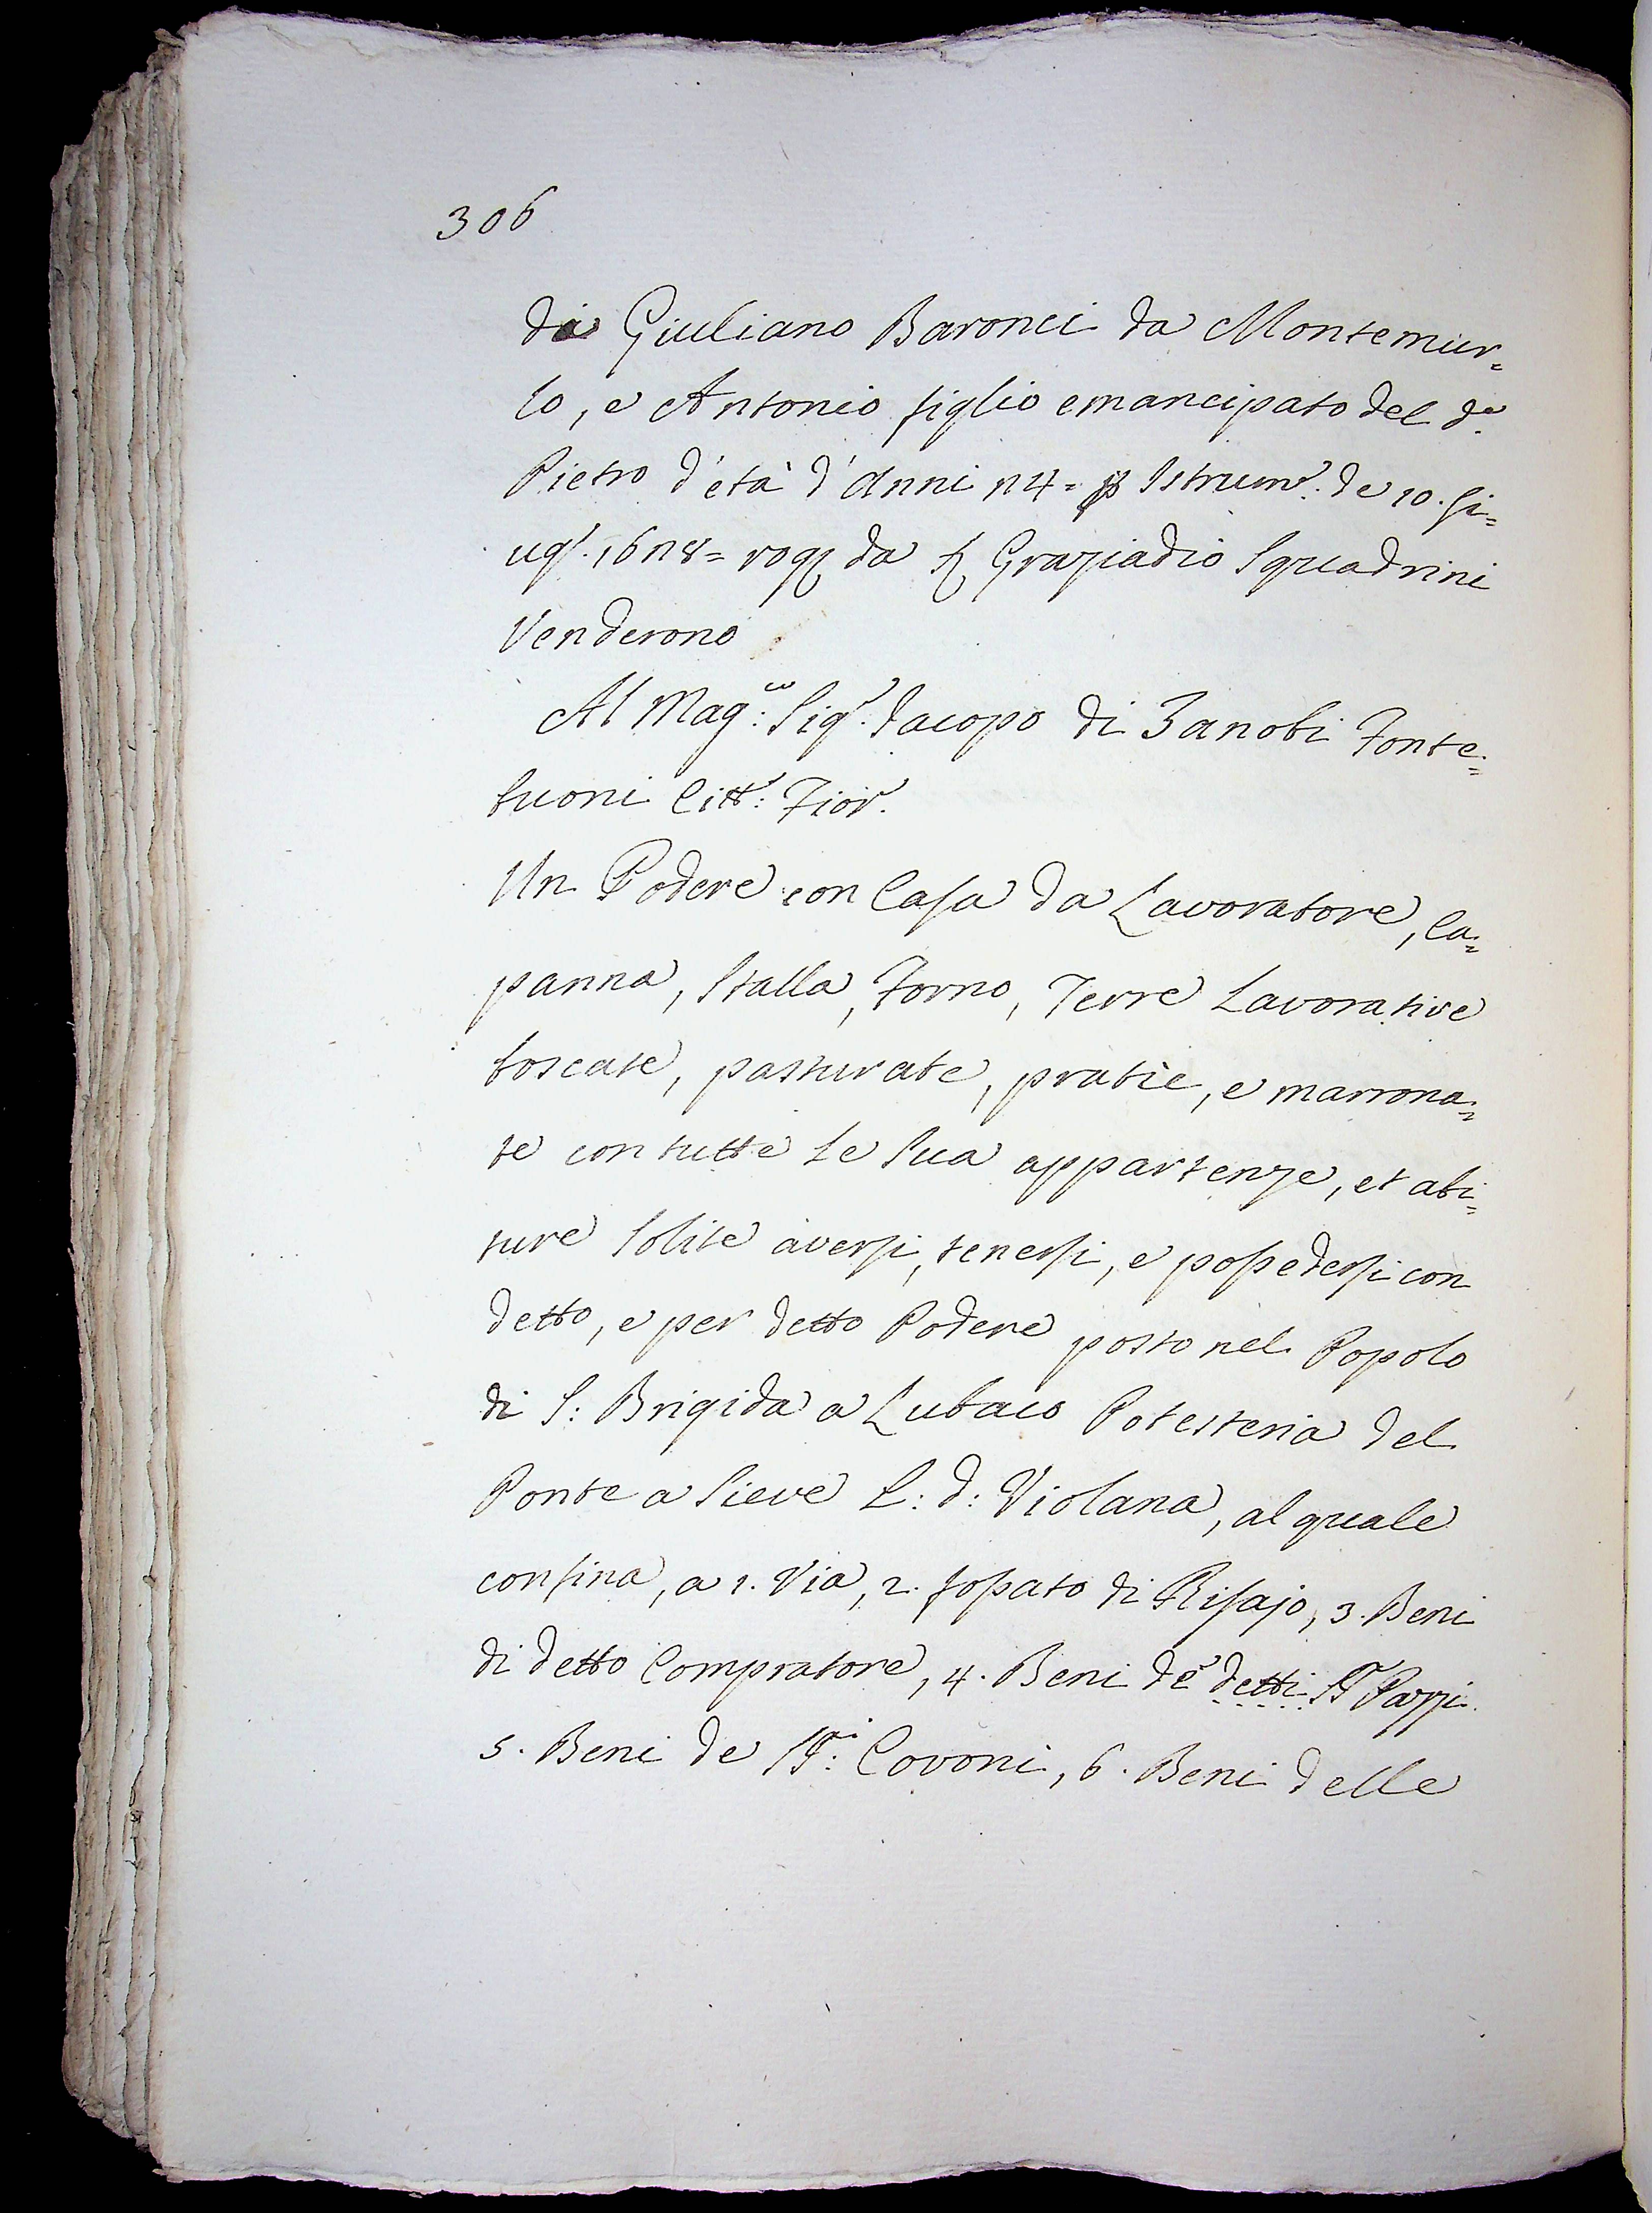 306
di Giuliano Baronci da Montemur=
lo, e Antonio figlio emancipato del d.º
Pietro d'età d'Anni 24= p Istrum.º de 10. Gi=
ug.º 1628= rog. da S. Graziadio Squadrini
Venderono
Al Mag.co: Sig.r Jacopo di Zanobi Fonte=
buoni Citt.º: Fior.º
Un Podere con Casa da Lavoratore, Ca=
panna, Stalla, Forno, Terre Lavorative
boscate, pasturate, pratìe, e marrona=
te con tutte Le Sua appartenze, et abi=
ture Solite aversi, tenersi, e possedersi con
detto, e per detto Podere posto nel Popolo
di S: Brigida a Lubaco Potesteria del
Ponte a Sieve L: d: Violana, al quale
confina, a 1. Via, 2. fossato di Risajo, 3. Beni
di detto Compratore, 4. Beni de' detti SS.ri Pazzi
5. Beni de SS.ri: Covoni, 6. Beni delle